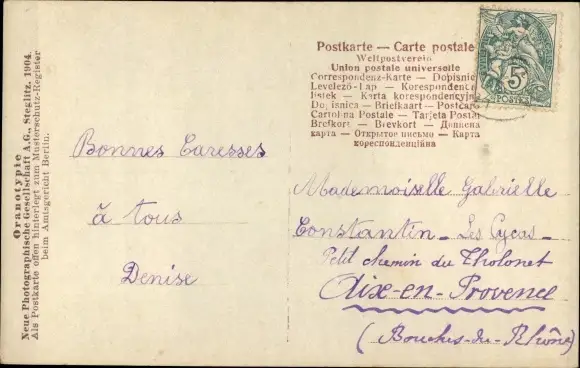 Postkarte — Carte postale
Weltpostverein
Union postale universelle
Correspondenz-Karte — Dopisnic
Levelező-Lap — Korespondenc
listek — Karta korespondencyjna
Dopisnica — Briefkaart — Postcard
Cartolina Postale — Tarjeta Postal
Brefkort — Brevkort — Дописна
карта — Открытое письмо — Карта
кореспонденційна
5
POSTES
Bonnes Caresses
à tous
Denise
Mademoiselle Gabrielle
Constantin - Les Cycas -
Petit chemin du Tholonet
Aix-en-Provence
(Bouches-du-Rhône)
Oranotypie
Neue Photographische Gesellschaft A.G., Steglitz, 1904.
Als Postkarte offen hinterlegt zum Musterschutz-Register
beim Amtsgericht Berlin.